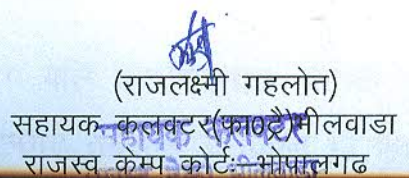 (राजलक्ष्मी गहलोत)
सहायक कलक्टर(फा0ट्रै)भीलवाडा
राजस्व केम्प कोर्टः- भोपालगढ